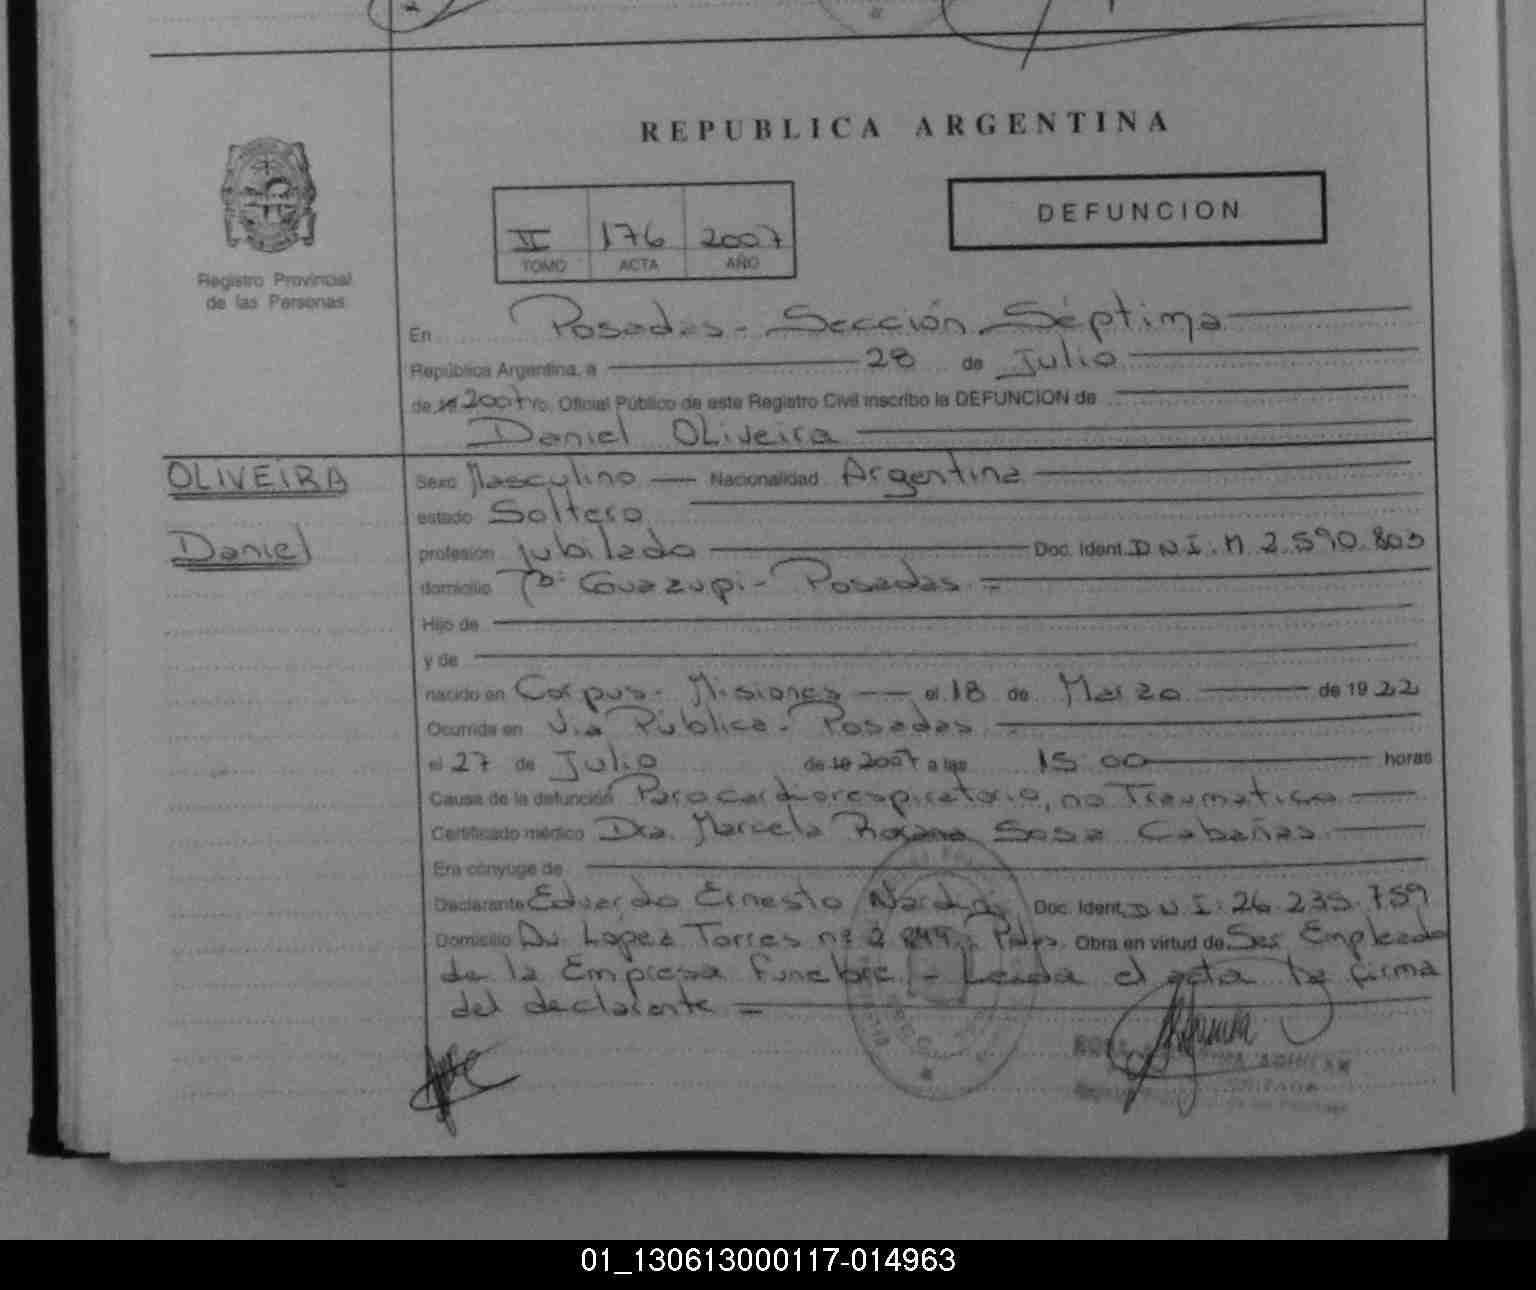 REPUBLICA ARGENTINA
Registro Provincial
de las Personas
II 176 2007
TOMO ACTA AÑO
DEFUNCION
En Posadas - Sección Séptima
República Argentina, a 28 de Julio
de 19 2007 Yo, Oficial Público de este Registro Civil inscribo la DEFUNCION de
Daniel OLiveira
OLIVEIRA
Daniel
Sexo Masculino Nacionalidad Argentina
estado Soltero
profesión jubilado Doc. Ident. D.N.I: M 2.590.803
domicilio Bº: Guazupi - Posadas =
Hijo de
y de
nacido en Corpus - Misiones el 18 de Marzo de 19 22
Ocurrida en Via Publica - Posadas
el 27 de Julio de 19 2007 a las 15:00 horas
Causa de la defunción Paro cardiorespiratorio, no Traumatico
Certificado médico Dra. Marcela Roxana Sosa Cabañas
Era cónyuge de
Declarante Eduardo Ernesto Doc. Ident. D.N.I: 26.235.759
Domicilio Av. Lopez Torres nº Pdas. Obra en virtud de Ser Empleado
de la Empresa Funebre - Leida el acta la firma
del declarante =
AGUILAR
01_130613000117-014963